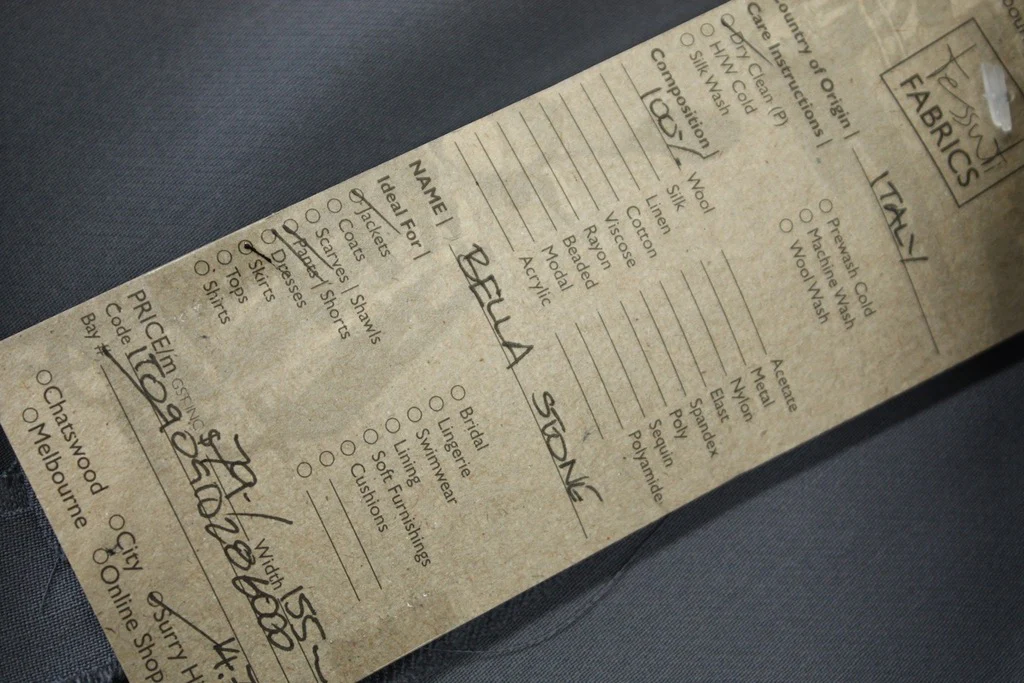 Tessuti
FABRICS
Country of Origin | ITALY
Care Instructions |
Dry Clean (P)
H/W Cold
Silk Wash
Prewash Cold
Machine Wash
Wool Wash
Composition |
100% Wool
Silk
Linen
Cotton
Viscose
Rayon
Beaded
Modal
Acrylic
Acetate
Metal
Nylon
Elast
Spandex
Poly
Sequin
Polyamide
NAME | BELLA STONE
Ideal For |
Jackets
Coats
Scarves | Shawls
Pants / Shorts
Dresses
Skirts
Tops
Shirts
Bridal
Lingerie
Swimwear
Lining
Soft Furnishings
Cushions
PRICE/m GST INC $79/ Width 155
Code
Bay #
Chatswood
Melbourne
City
Online Shop
Surry H